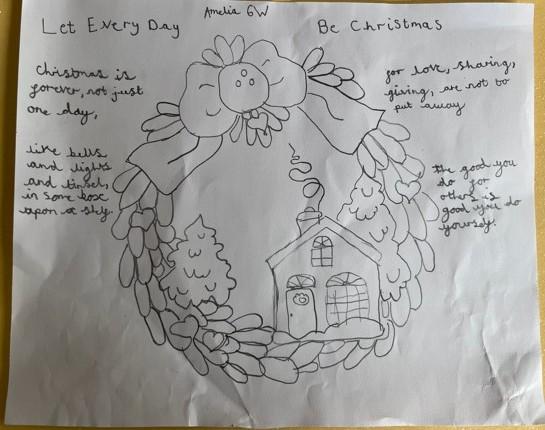 Amelia 6W
Let Every Day Be Christmas
Christmas is
forever, not just
one day,
for love, sharing,
giving, are not to
put away
like bells
and lights
and tinsel,
in some box
upon a shelf.
the good you
do for
others is
good you do
yourself.